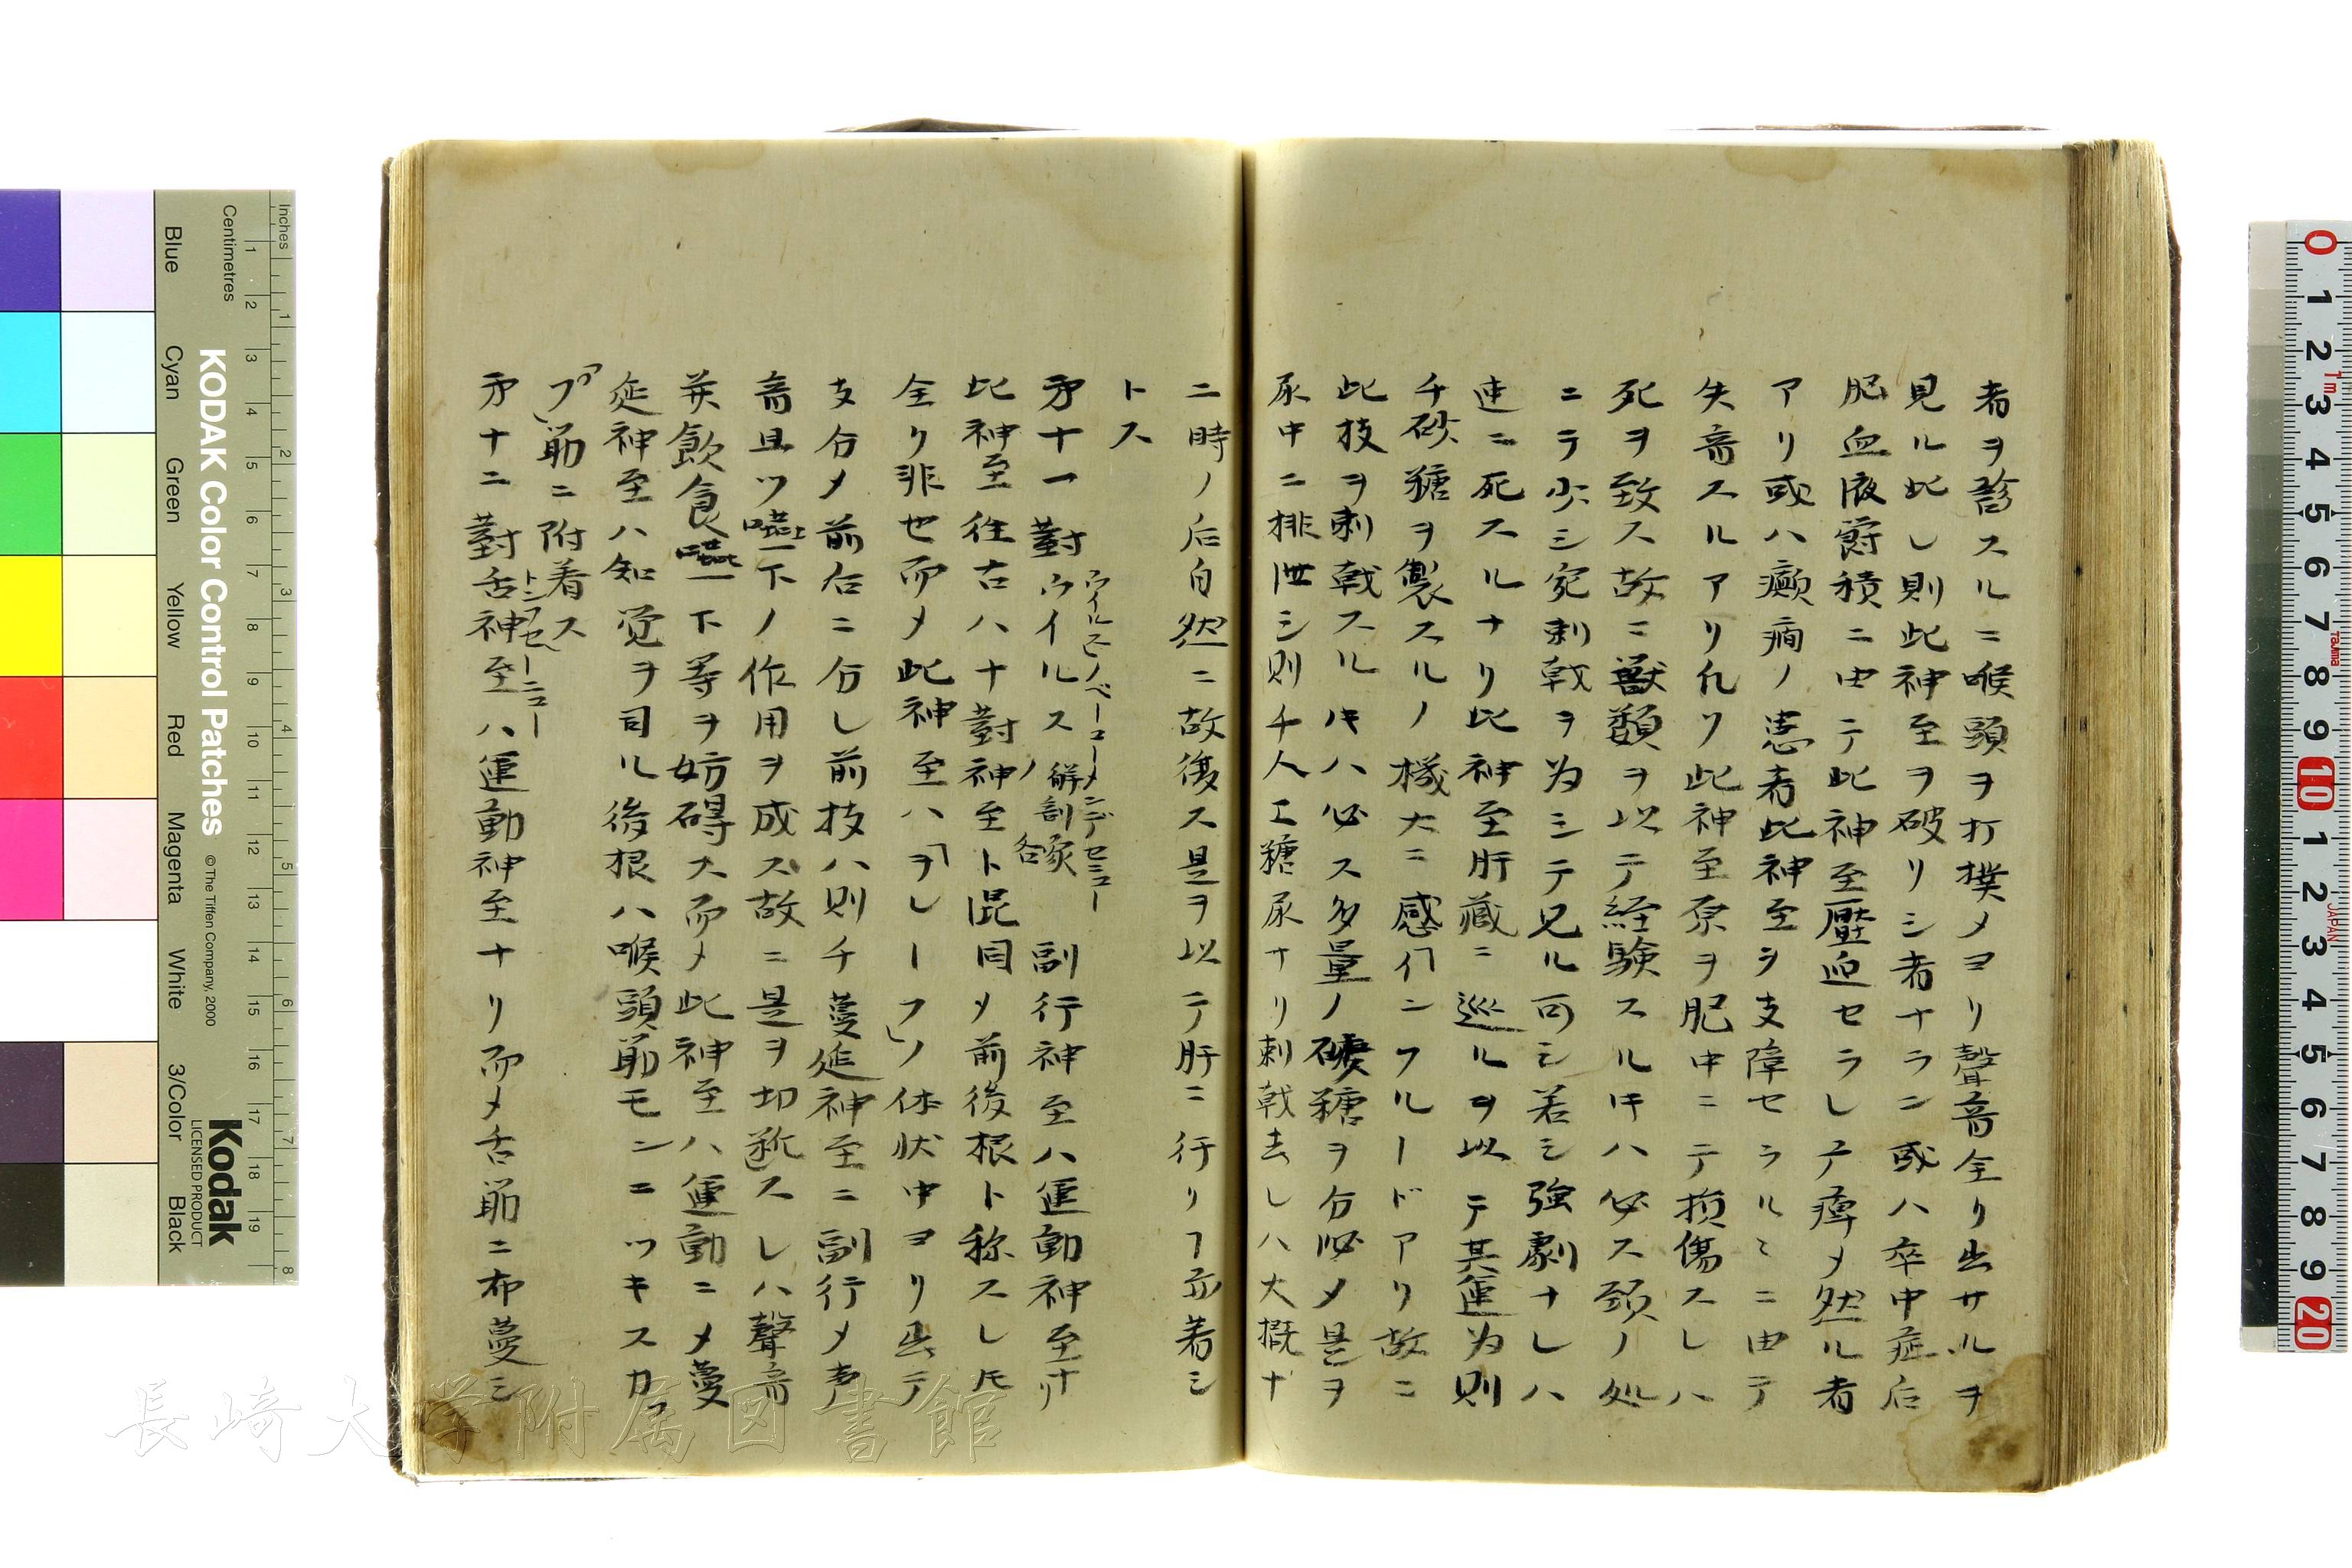 者ヲ診スルニ喉頭ヲ打撲メヨリ聲音全リ出サルヲ
見ル此レ則此神至ヲ破リシ者ナラン或ハ卒中症后
肥血液欝積ニ由テ此神至壓迫セラレテ痺メ然ル者
アリ或ハ癲癇ノ患者此神至ヲ支障セラルヽニ由テ
失音スルアリ凡ソ此神至原ヲ肥中ニテ損傷スレハ
死ヲ致ス故ニ獣類ヲ以テ経験スルキハ必ス頚ノ処
ニテ少シ宛刺戟ヲ為シテ見ル可シ若シ強劇ナレハ
速ニ死スルナリ此神至肝臓ニ巡ルヲ以テ其運為則
チ砂糖ヲ製スルノ機大ニ感「インフルードアリ故ニ
此技ヲ刺戟スルキハ必ス多量ノ糖ヲ分泌メ是ヲ
尿中ニ排泄シ則チ人工糖尿ナリ刺戟去レハ大概ナ
二時ノ后自然ニ故復ス是ヲ以テ肝ニ行リフ示着シ
トス
ウイルスノベーコーメンデセミュー
第十一對ウイルス解剖家名ノ副行神至ハ運動神至ナリ
此神至往古ハ十對神至ト混同メ前後根ト称スレ𪜈
全リ非也而メ此神至ハ「ヲレーフ」ノ体状中ヨリ出テ
支分メ前右ニ分レ前技ハ則チ蔓延神至ニ副行メ声
音且ツ嚥下ノ作用ヲ成ス故ニ是ヲ切断スレハ聲音
并飲食嚥下等ヲ妨碍ス而メ此神至ハ運動ニメ蔓
延神至ハ知覚ヲ司ル後根ハ喉頭筋モンニツキスカフ
フ」筋ニ附着ス
トンフセーニュー
第十二對舌神至ハ運動神至ナリ而メ舌筋ニ布蔓シ
Inches
Centimetres
KODAK Color Control Patches
© The Tiffen Company, 2000
Kodak
LICENSED PRODUCT
Blue
Cyan
Green
Yellow
Red
Magenta
White
3/Color
Black
長崎大学附属図書館
JAPAN